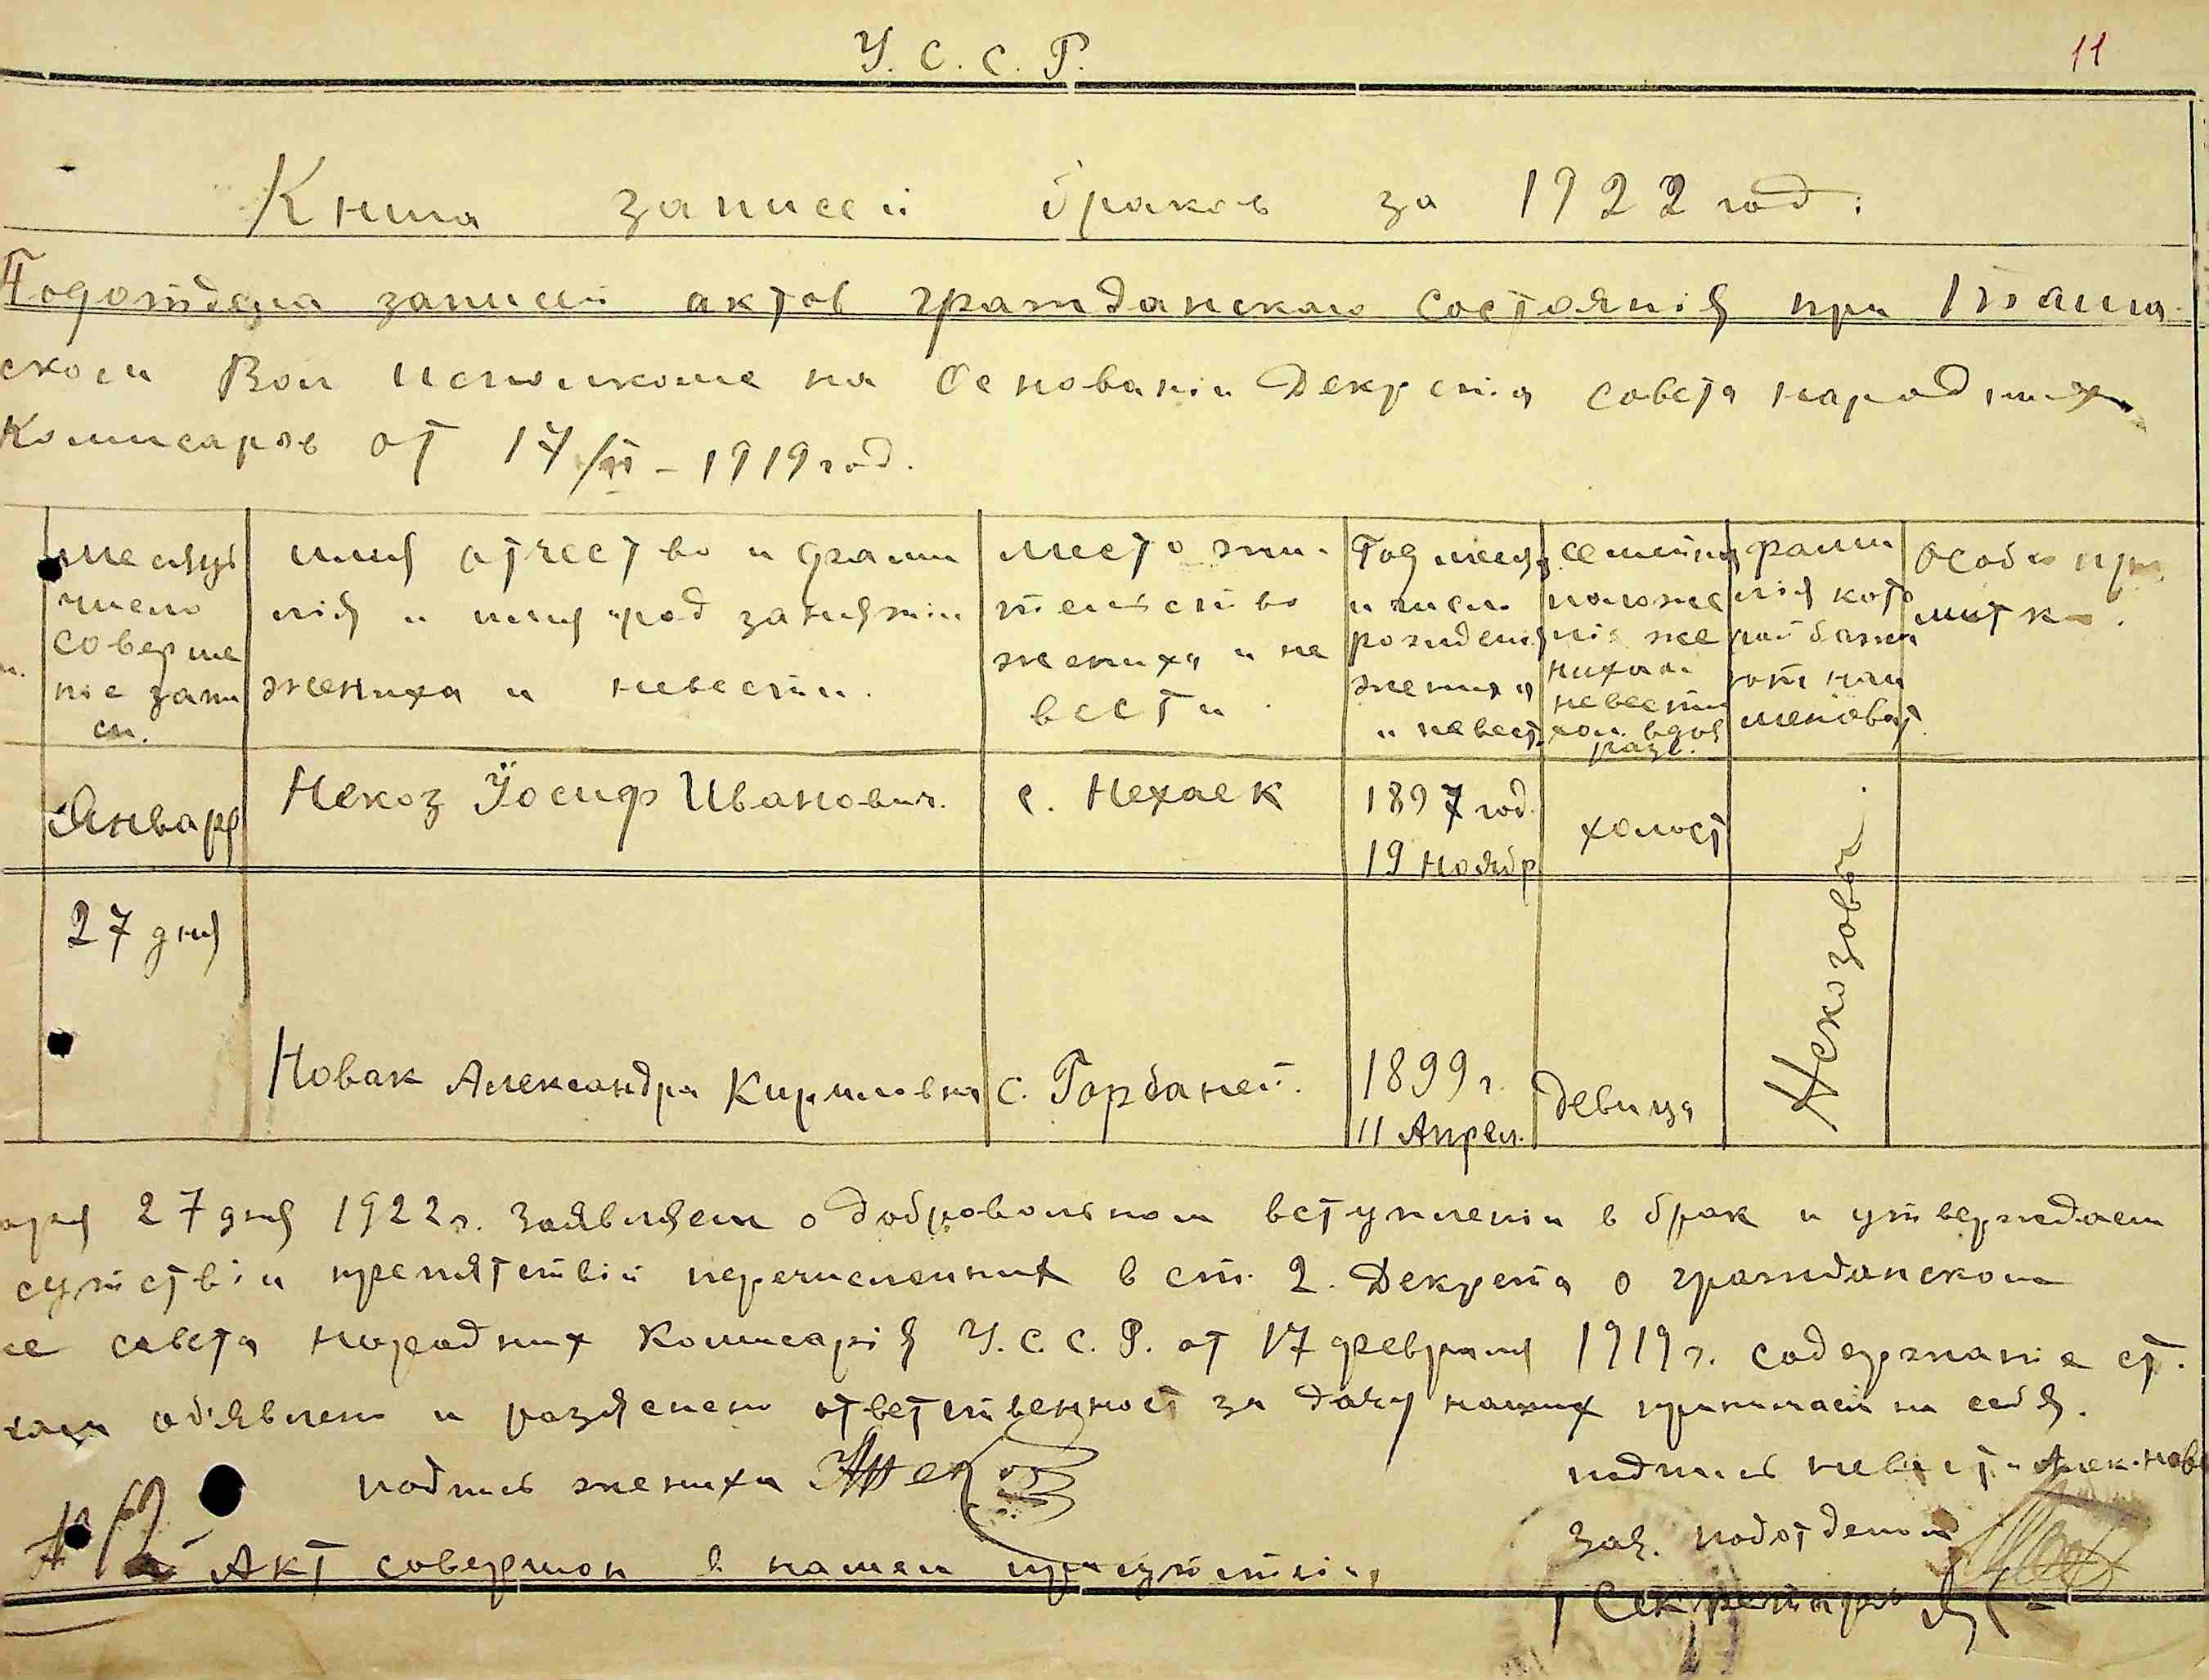 У. С. С. Р.
11
Книга записей браков за 1922 год.
Подотдела записей актов гражданскаго состоянія при
ском Вол Исполкоме на Основаніи Декрета Совета народних
Комисаров от 17/II – 1919 год.
месяць число соверше ніе запи си.
имя отчество и фами лія и имя род занятія жениха и невести.
место жи тельство жениха и не вести.
Год месяц и число рождения жениха и невест.
семейн положе ніе же ниха и невести хол. вдов разв.
фами лія кото рой бажа ют наи меноват.
Особ. при митки.
Январ
Некоз Йосиф Иванович.
с. Нехаек
1897 год.
19 Ноябр
холост
27 дня
Некозови
Новак Александра Кириловна
с. Горбаней.
1899 г.
11 Апрел.
девица
аря 27 дня 1922 г. Заявляем о добровольном вступленіи в брак и утверждаем
сутствіи препятствій перечисленних в ст. 2. Декрета о гражданском
ке совета народних Комисарія У. С. С. Р. от 17 февраля 1919 г. содержаніе ст.
нам об'явлено и раз'яснено ответственност за дачу принимаем на себя.
подпись жениха
подпись невест. Алек. Нова
№ 12
Зав. подотделом
Акт совершон в нашем присутствіи,
Секретарь